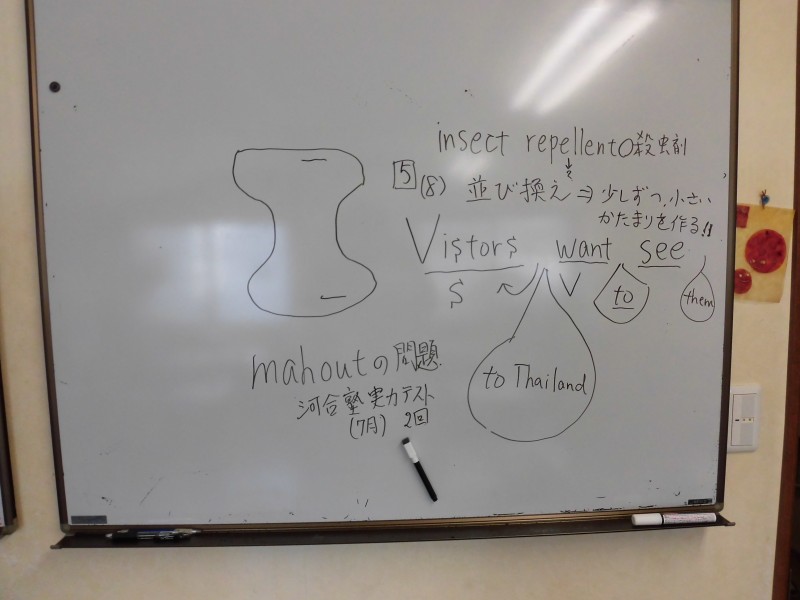 insect repellentの殺虫剤
5 (8) 並び換え⇒少しずつ、小さい
かたまりを作る!!
Vistors want see
S V to them
to Thailand
mahoutの問題
河合塾実力テスト
(7月) 2回